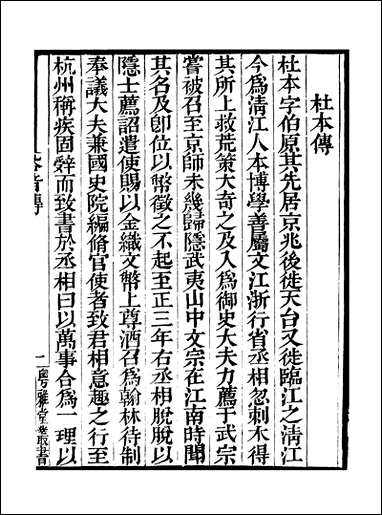 杜本傳
杜本字伯原其先居京兆後徙天台又徙臨江之淸江
今爲淸江人本博學善屬文江浙行省丞相忽刺木得
其所上救荒策大奇之及入爲御史大夫力薦于武宗
嘗被召至京師未幾歸隱武夷山中文宗在江南時聞
其名及卽位以幣徵之不起至正三年右丞相脫脫以
隱士薦詔遣使賜以金織文幣上尊酒召爲翰林待制
奉議大夫兼國史院編脩官使者致君相意趣之行至
杭州稱疾固辭而致書於丞相曰以萬事合爲一理以
谷音傳
一
粤雅堂叢書